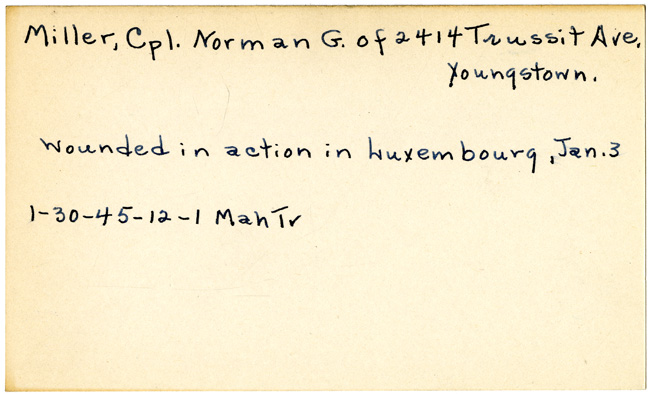 Miller, Cpl. Norman G. of 2414 Trussit Ave,
Youngstown.
Wounded in action in Luxembourg, Jan. 3
1-30-45-12-1 Mah Tr